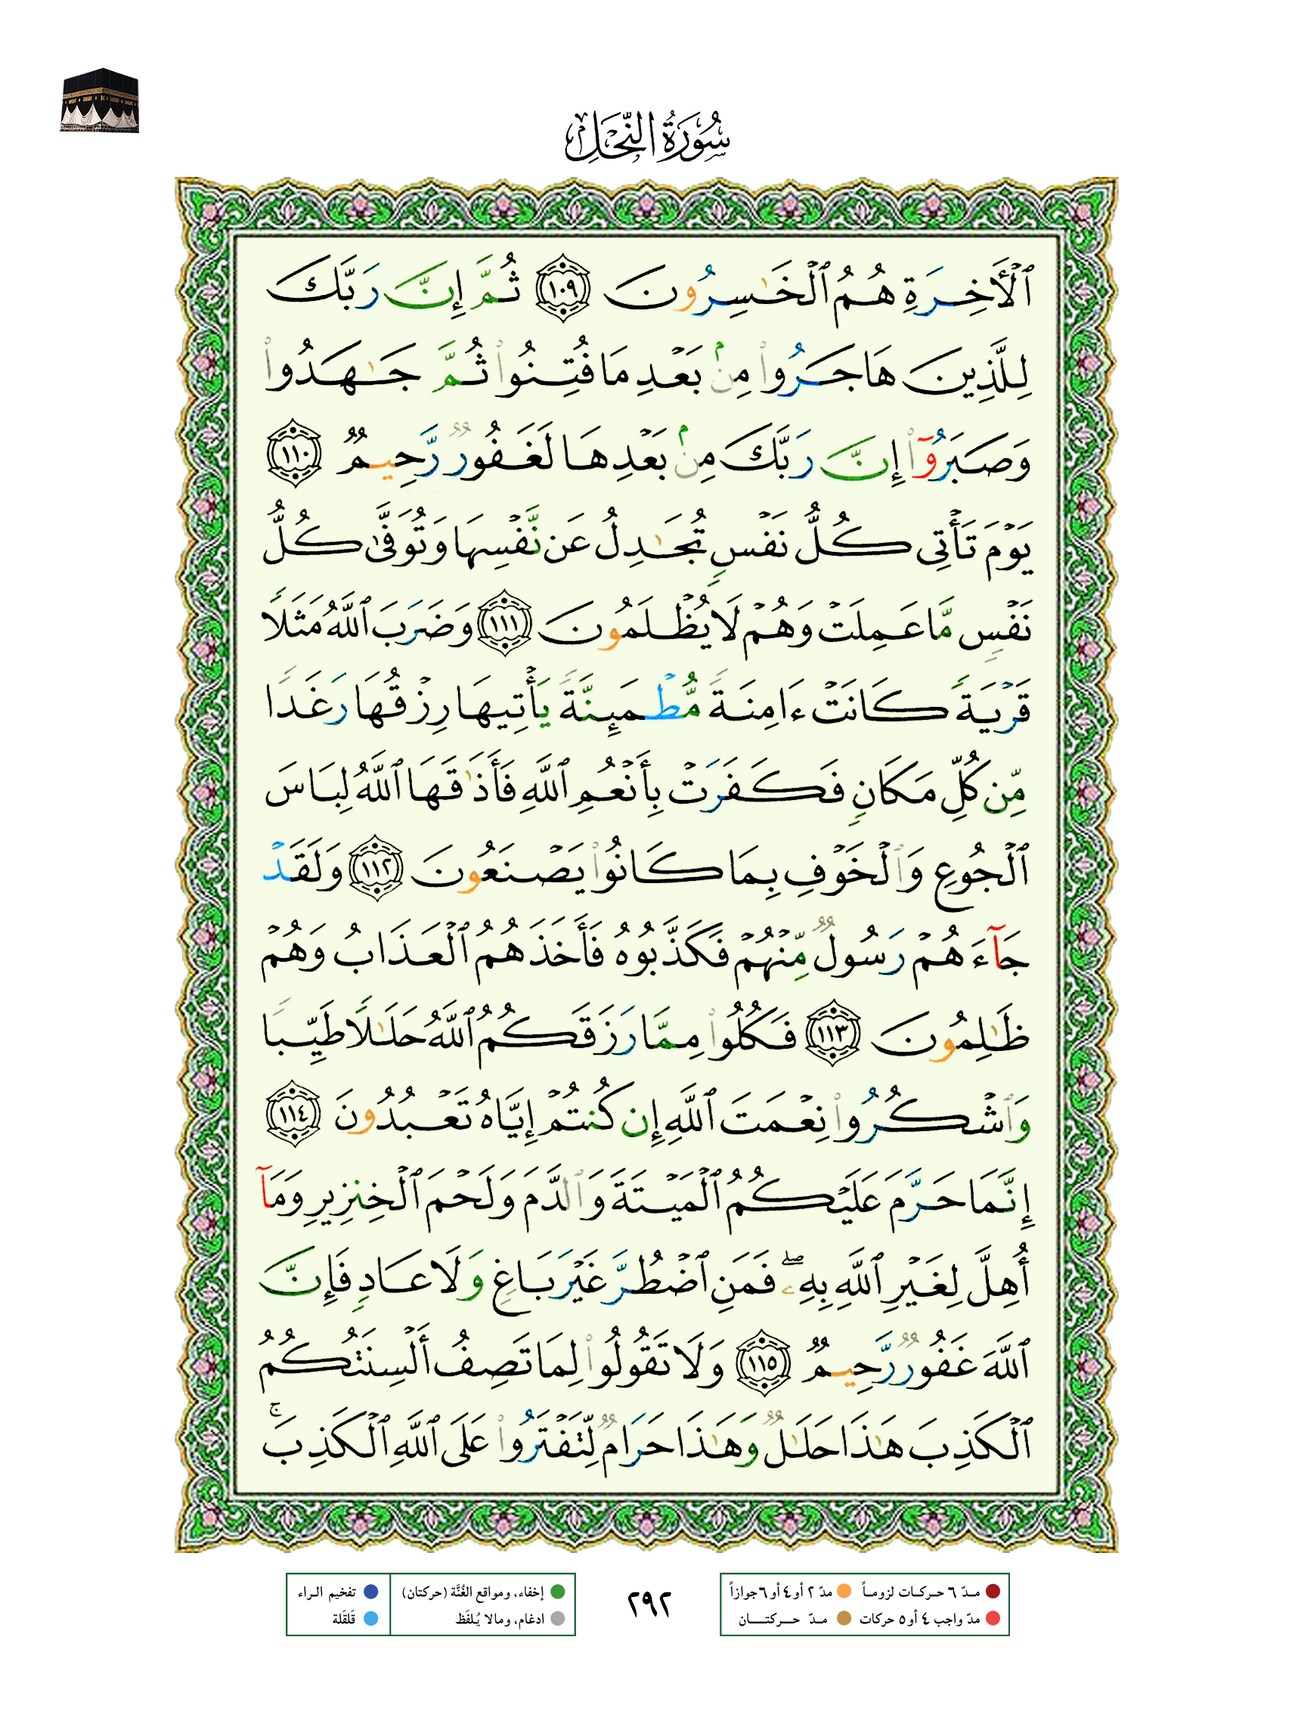 سُورَةُ النَّحۡلِ
ٱلۡأَخِرَةِ هُمُ ٱلۡخَٰسِرُونَ ١٠٩ ثُمَّ إِنَّ رَبَّكَ
لِلَّذِينَ هَاجَرُواْ مِنۢ بَعۡدِ مَا فُتِنُواْ ثُمَّ جَٰهَدُواْ
وَصَبَرُوٓاْ إِنَّ رَبَّكَ مِنۢ بَعۡدِهَا لَغَفُورٞ رَّحِيمٞ ١١٠
يَوۡمَ تَأۡتِي كُلُّ نَفۡسٖ تُجَٰدِلُ عَن نَّفۡسِهَا وَتُوَفَّىٰ كُلُّ
نَفۡسٖ مَّا عَمِلَتۡ وَهُمۡ لَا يُظۡلَمُونَ ١١١ وَضَرَبَ ٱللَّهُ مَثَلٗا
قَرۡيَةٗ كَانَتۡ ءَامِنَةٗ مُّطۡمَئِنَّةٗ يَأۡتِيهَا رِزۡقُهَا رَغَدٗا
مِّن كُلِّ مَكَانٖ فَكَفَرَتۡ بِأَنۡعُمِ ٱللَّهِ فَأَذَٰقَهَا ٱللَّهُ لِبَاسَ
ٱلۡجُوعِ وَٱلۡخَوۡفِ بِمَا كَانُواْ يَصۡنَعُونَ ١١٢ وَلَقَدۡ
جَآءَهُمۡ رَسُولٞ مِّنۡهُمۡ فَكَذَّبُوهُ فَأَخَذَهُمُ ٱلۡعَذَابُ وَهُمۡ
ظَٰلِمُونَ ١١٣ فَكُلُواْ مِمَّا رَزَقَكُمُ ٱللَّهُ حَلَٰلٗا طَيِّبٗا
وَٱشۡكُرُواْ نِعۡمَتَ ٱللَّهِ إِن كُنتُمۡ إِيَّاهُ تَعۡبُدُونَ ١١٤
إِنَّمَا حَرَّمَ عَلَيۡكُمُ ٱلۡمَيۡتَةَ وَٱلدَّمَ وَلَحۡمَ ٱلۡخِنزِيرِ وَمَآ
أُهِلَّ لِغَيۡرِ ٱللَّهِ بِهِۦۖ فَمَنِ ٱضۡطُرَّ غَيۡرَ بَاغٖ وَلَا عَادٖ فَإِنَّ
ٱللَّهَ غَفُورٞ رَّحِيمٞ ١١٥ وَلَا تَقُولُواْ لِمَا تَصِفُ أَلۡسِنَتُكُمُ
ٱلۡكَذِبَ هَٰذَا حَلَٰلٞ وَهَٰذَا حَرَامٞ لِّتَفۡتَرُواْ عَلَى ٱللَّهِ ٱلۡكَذِبَۚ
مـدّ ٦ حـركـات لزومـاً مدّ ٢ أو ٤ أو ٦ جوازاً
مدّ واجب ٤ أو ٥ حركات مـدّ حـركتـــان
٢٩٢
إخفاء، ومواقع الغُنَّة (حركتان) تفخيم الراء
ادغام، ومالا يُلفَظ قلقَلة